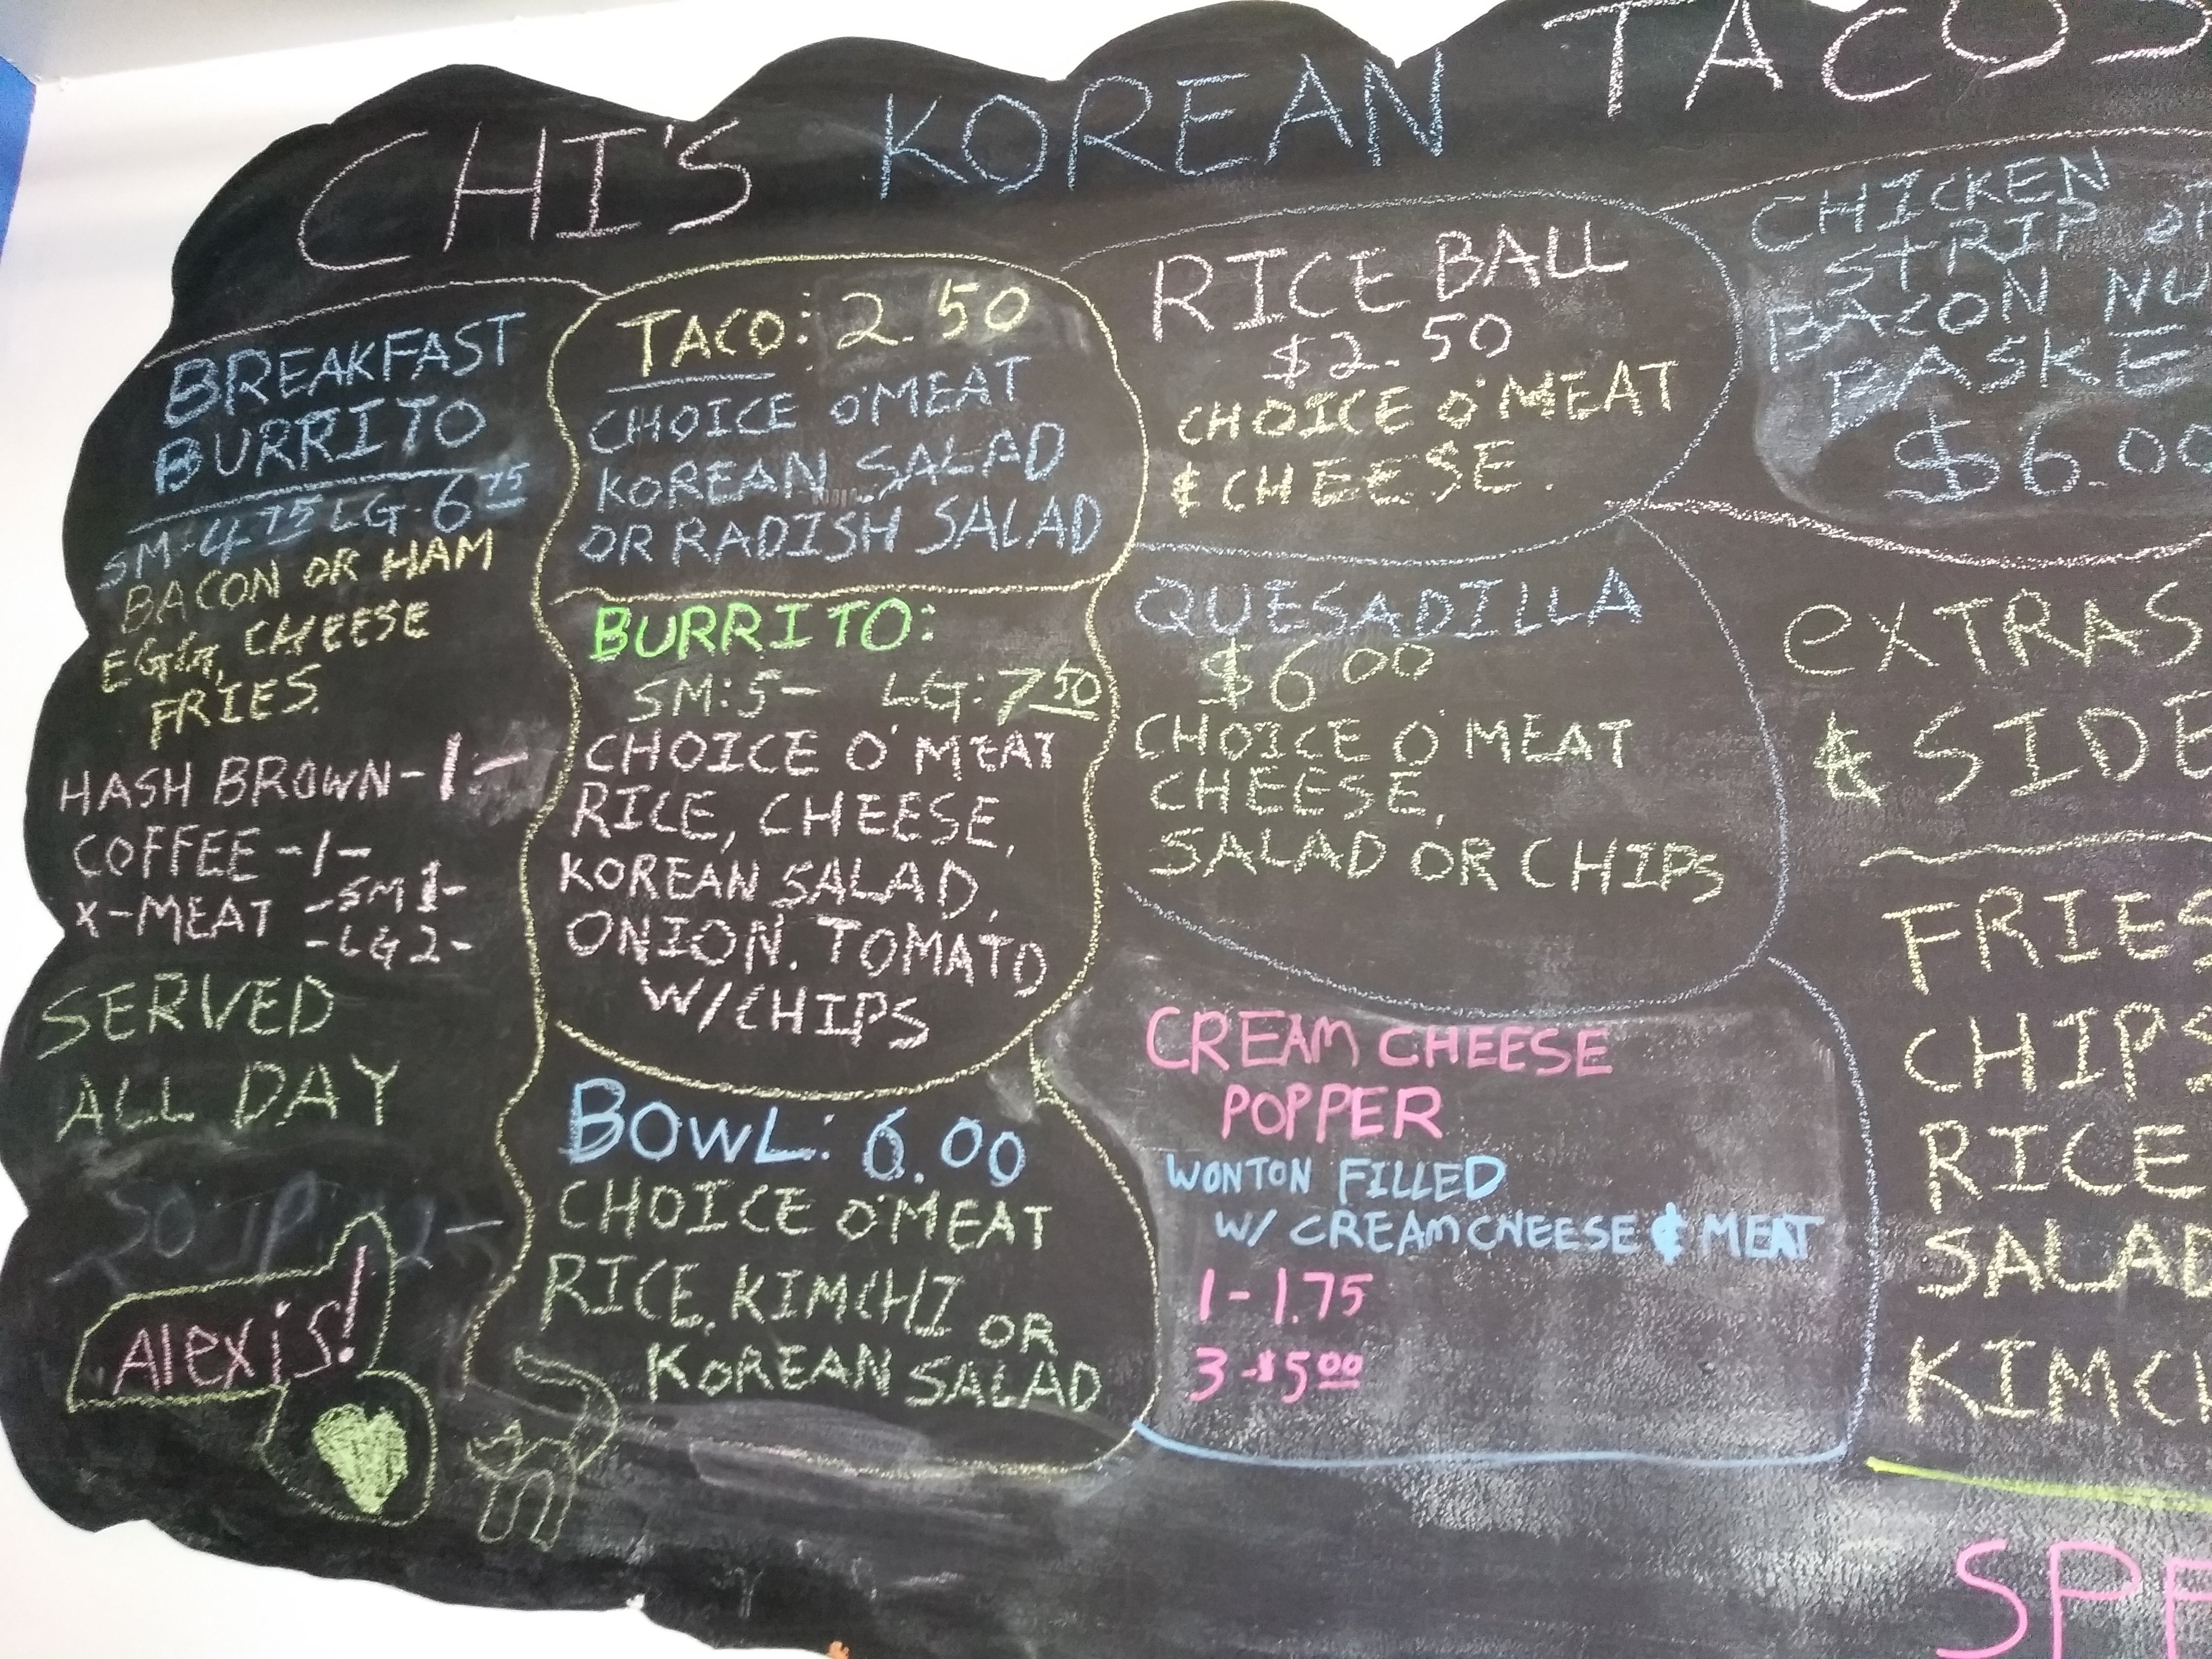 CHI'S KOREAN TACOS
BREAKFAST
BURRITO
SM-4 75 LG-6 75
BACON OR HAM
EGG, CHEESE
FRIES.
HASH BROWN-1-
COFFEE-1-
X-MEAT -SM 1-
-LG 2-
SERVED
ALL DAY
SOUP 2-
Alexis!
TACO: 2.50
CHOICE O'MEAT
KOREAN SALAD
OR RADISH SALAD
BURRITO:
SM:5- LG:7 50
CHOICE O'MEAT
RICE, CHEESE,
KOREAN SALAD,
ONION. TOMATO
W/CHIPS
BOWL: 6.00
CHOICE O'MEAT
RICE, KIMCHI OR
KOREAN SALAD
RICE BALL
$2.50
CHOICE O'MEAT
& CHEESE.
QUESADILLA
$6 00
CHOICE O'MEAT
CHEESE,
SALAD OR CHIPS
CREAM CHEESE
POPPER
WONTON FILLED
W/ CREAMCHEESE & MEAT
1-1.75
3-$5 00
CHICKEN
STRIP
BACON NU
BASKE
$6.00
EXTRAS
& SIDE
FRIES
CHIPS
RICE
SALAD
KIMC
SPE